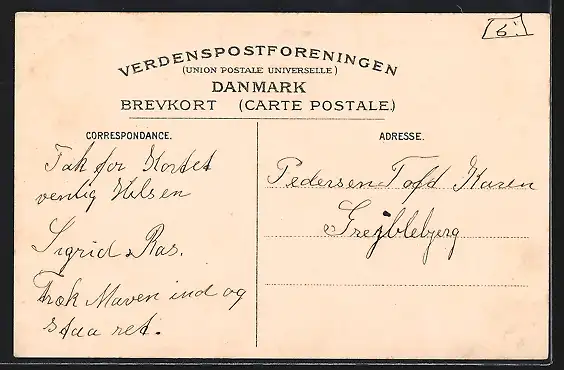 6.
VERDENSPOSTFORENINGEN
(UNION POSTALE UNIVERSELLE)
DANMARK
BREVKORT (CARTE POSTALE.)
CORRESPONDANCE.
Tak for Kortet
venlig Hilsen
Sigrid Ras.
Træk Maven ind og
staa ret.
ADRESSE.
Pedersen Toft Karen
Grejblebjerg